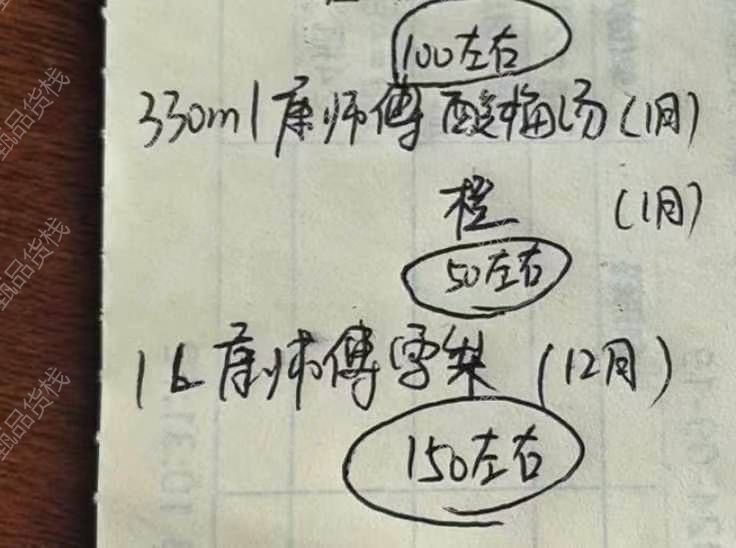 100左右
330ml康师傅酸梅汤(1月)
橙 (1月)
50左右
1L康师傅雪梨(12月)
150左右
甄品货栈
甄品货栈
甄品货栈